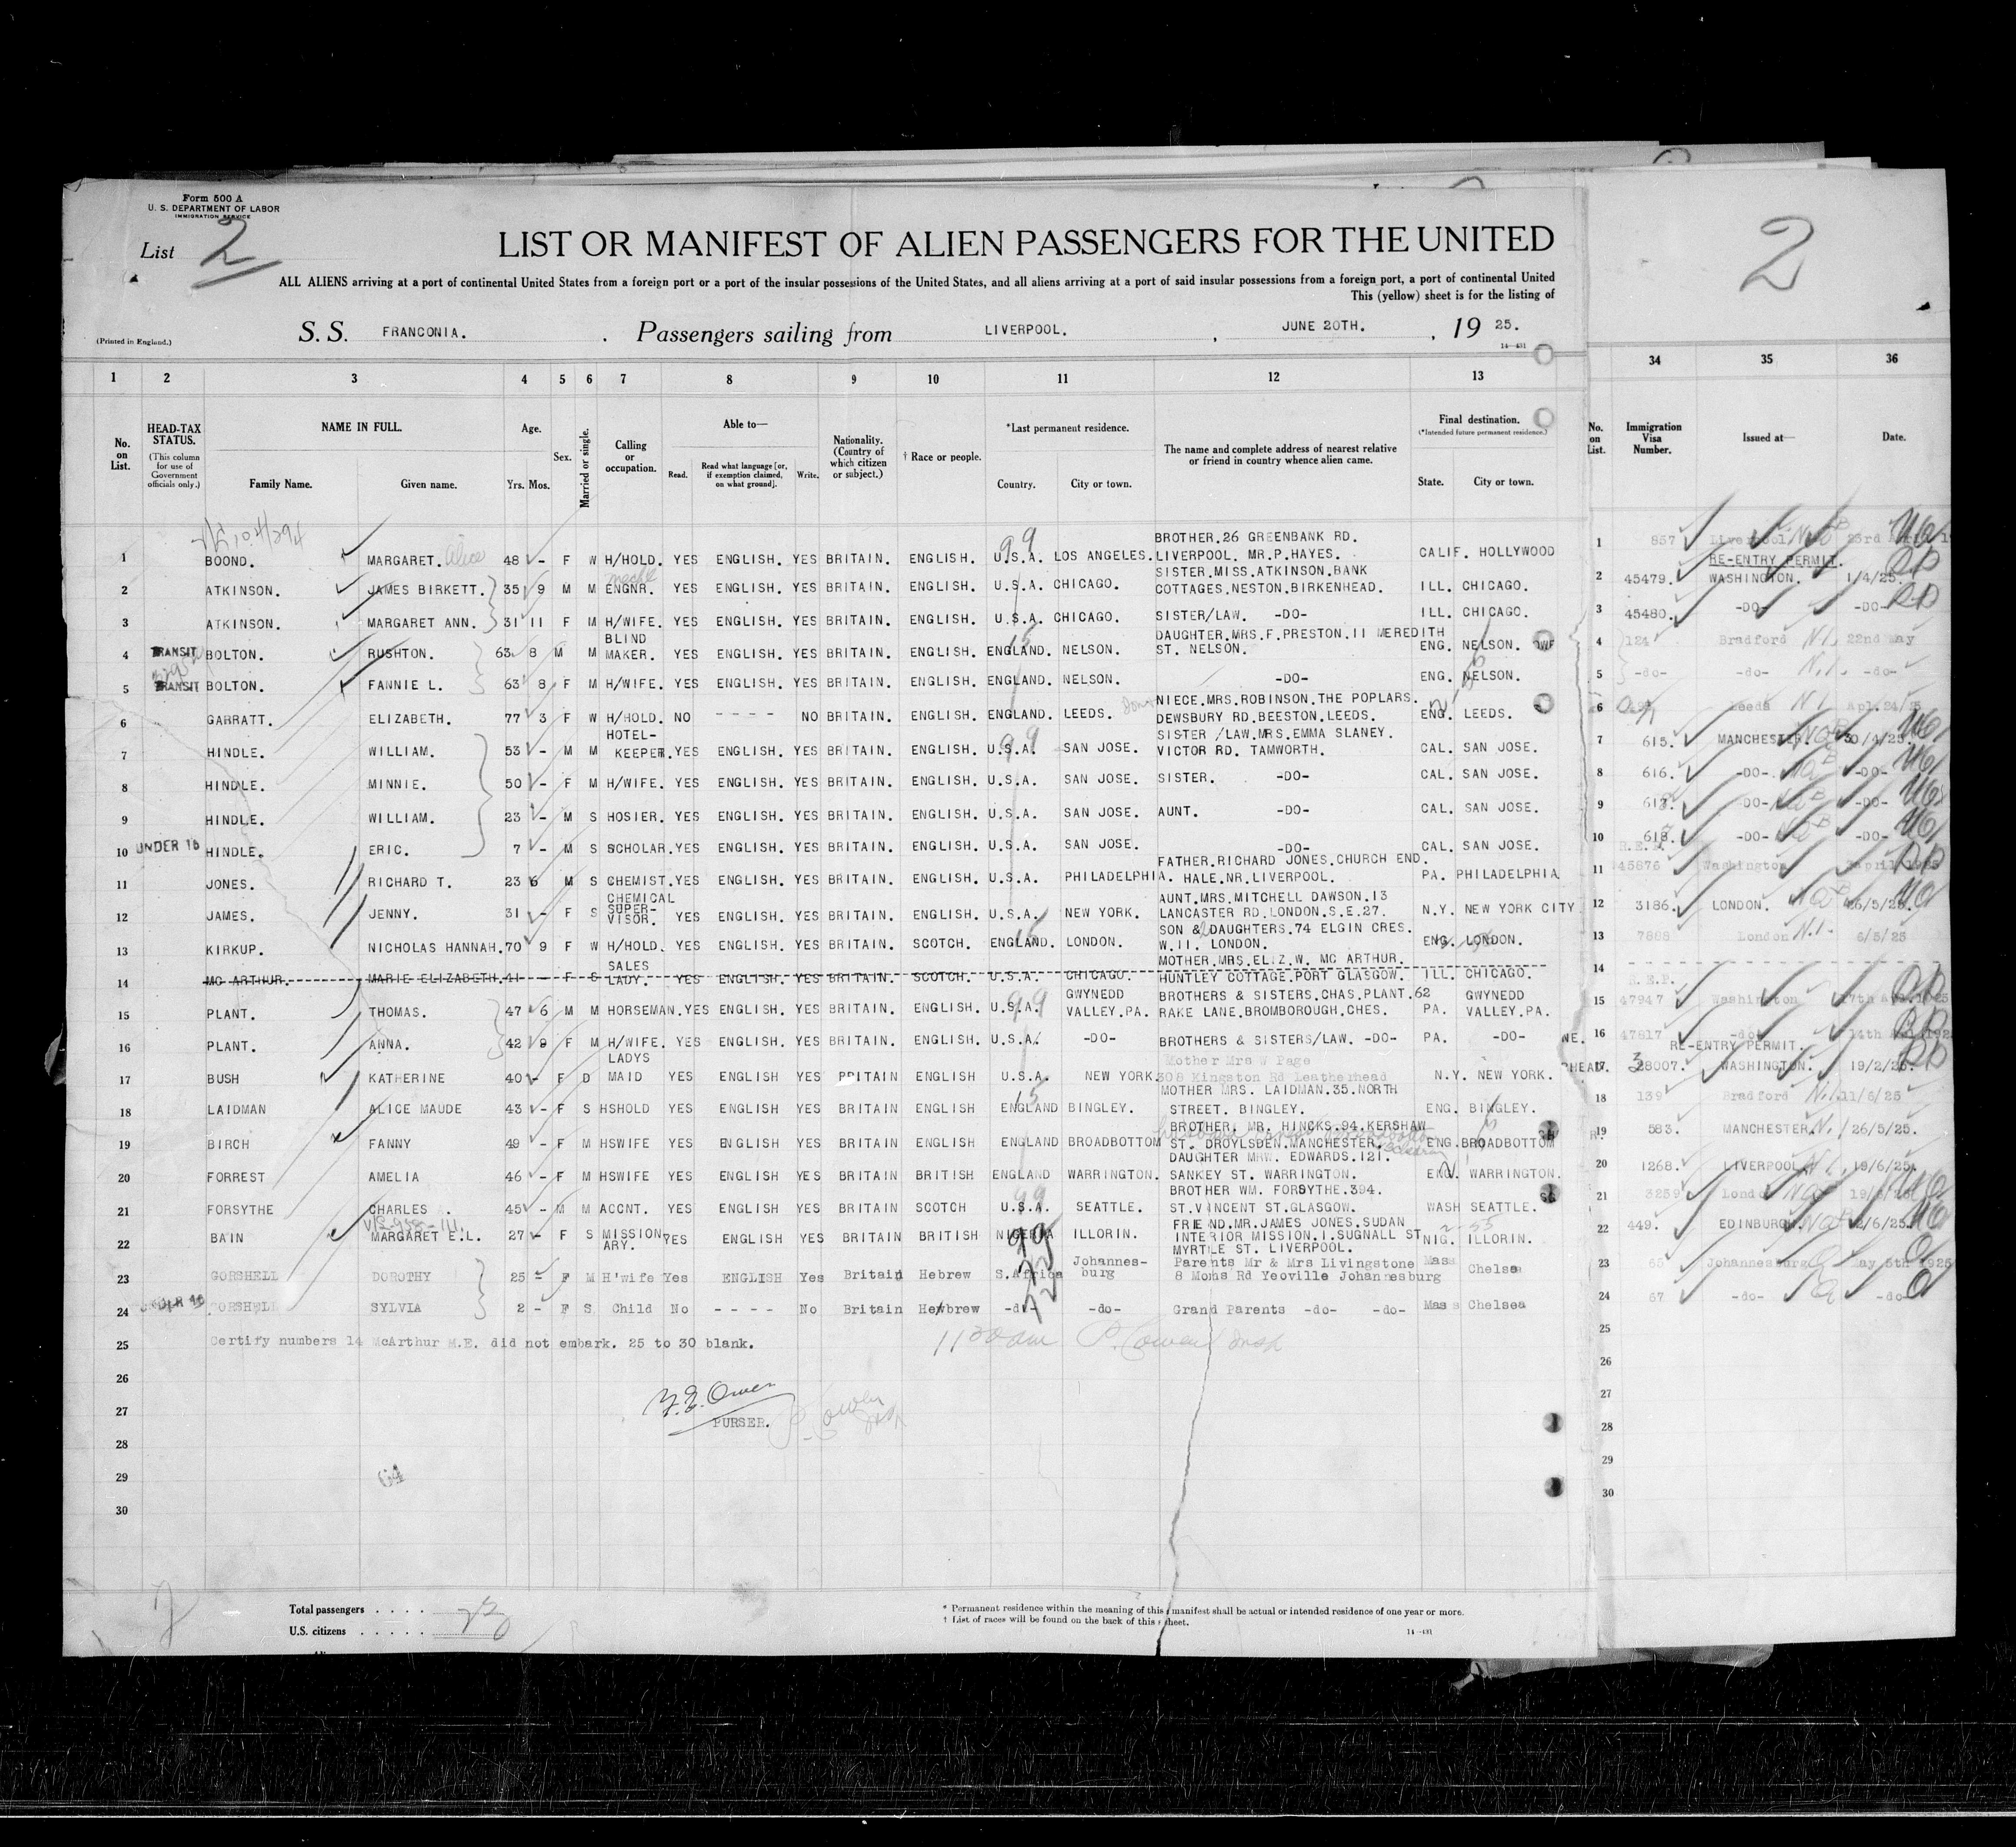 Form 500 A
U. S. DEPARTMENT OF LABOR
IMMIGRATION SERVICE
List 2
2
LIST OR MANIFEST OF ALIEN PASSENGERS FOR THE UNITED
ALL ALIENS arriving at a port of continental United States from a foreign port or a port of the insular possessions of the United States, and all aliens arriving at a port of said insular possessions from a foreign port, a port of continental United
This (yellow) sheet is for the listing of
(Printed in England.)
S. S. FRANCONIA. Passengers sailing from LIVERPOOL. , JUNE 20TH. , 19 25.
14—431
1 2 3 4 5 6 7 8 9 10 11 12 13 34 35 36
No. on List.
HEAD-TAX STATUS.
(This column for use of Government officials only.)
NAME IN FULL.
Family Name. Given name.
Age.
Yrs. Mos.
Sex.
Married or single.
Calling or occupation.
Able to—
Read. Read what language [or, if exemption claimed, on what ground]. Write.
Nationality. (Country of which citizen or subject.)
† Race or people.
*Last permanent residence.
Country. City or town.
The name and complete address of nearest relative or friend in country whence alien came.
Final destination.
(*Intended future permanent residence.)
State. City or town.
No. on List.
Immigration Visa Number.
Issued at—
Date.
1 BOOND. MARGARET. Alice 48 - F W H/HOLD. YES ENGLISH. YES BRITAIN. ENGLISH. U.S.A. LOS ANGELES. BROTHER.26 GREENBANK RD. LIVERPOOL. MR.P.HAYES. CALIF. HOLLYWOOD 1 857 Liverpool 23rd
2 ATKINSON. JAMES BIRKETT. 35 9 M M ENGNR. YES ENGLISH. YES BRITAIN. ENGLISH. U.S.A. CHICAGO. SISTER.MISS.ATKINSON.BANK COTTAGES.NESTON.BIRKENHEAD. ILL. CHICAGO. 2 45479. RE-ENTRY PERMIT. WASHINGTON. 1/4/25. RP
3 ATKINSON. MARGARET ANN. 31 11 F M H/WIFE. YES ENGLISH. YES BRITAIN. ENGLISH. U.S.A. CHICAGO. SISTER/LAW. -DO- ILL. CHICAGO. 3 45480. -DO- -DO- RP
4 TRANSIT BOLTON. RUSHTON. 63 8 M M BLIND MAKER. YES ENGLISH. YES BRITAIN. ENGLISH. ENGLAND. NELSON. DAUGHTER.MRS.F.PRESTON.11 MEREDITH ST. NELSON. ENG. NELSON. 4 124 Bradford N.I. 22nd May
5 TRANSIT BOLTON. FANNIE L. 63 8 F M H/WIFE. YES ENGLISH. YES BRITAIN. ENGLISH. ENGLAND. NELSON. -DO- ENG. NELSON. 5 -do- -do- N.I. -do-
6 GARRATT. ELIZABETH. 77 3 F W H/HOLD. NO ---- NO BRITAIN. ENGLISH. ENGLAND. LEEDS. NIECE.MRS.ROBINSON.THE POPLARS. DEWSBURY RD.BEESTON.LEEDS. ENG. LEEDS. 6 Leeds N I Apl.24/25
7 HINDLE. WILLIAM. 53 - M M HOTEL-KEEPER. YES ENGLISH. YES BRITAIN. ENGLISH. U.S.A. SAN JOSE. SISTER /LAW.MRS.EMMA SLANEY. VICTOR RD. TAMWORTH. CAL. SAN JOSE. 7 615. MANCHESTER. 30/4/25.
8 HINDLE. MINNIE. 50 - F M H/WIFE. YES ENGLISH. YES BRITAIN. ENGLISH. U.S.A. SAN JOSE. SISTER. -DO- CAL. SAN JOSE. 8 616. -DO- -DO-
9 HINDLE. WILLIAM. 23 - M S HOSIER. YES ENGLISH. YES BRITAIN. ENGLISH. U.S.A. SAN JOSE. AUNT. -DO- CAL. SAN JOSE. 9 -DO- -DO-
10 UNDER 16 HINDLE. ERIC. 7 - M S SCHOLAR. YES ENGLISH. YES BRITAIN. ENGLISH. U.S.A. SAN JOSE. -DO- CAL. SAN JOSE. 10 618. -DO- -DO-
11 JONES. RICHARD T. 23 6 M S CHEMIST. YES ENGLISH. YES BRITAIN. ENGLISH. U.S.A. PHILADELPHIA. FATHER.RICHARD JONES.CHURCH END. HALE.NR.LIVERPOOL. PA. PHILADELPHIA 11 R.E.P. 45876 Washington
12 JAMES. JENNY. 31 - F S CHEMICAL SUPER-VISOR. YES ENGLISH. YES BRITAIN. ENGLISH. U.S.A. NEW YORK. AUNT.MRS.MITCHELL DAWSON.13 LANCASTER RD.LONDON.S.E.27. N.Y. NEW YORK CITY 12 3186. LONDON. 26/5/25.
13 KIRKUP. NICHOLAS HANNAH. 70 9 F W H/HOLD. YES ENGLISH. YES BRITAIN. SCOTCH. ENGLAND. LONDON. SON & 2 DAUGHTERS.74 ELGIN CRES. W.11. LONDON. ENG. LONDON. 13 7888 London N.I. 6/5/25
14 MC ARTHUR. MARIE ELIZABETH. 41 - F S SALES LADY. YES ENGLISH. YES BRITAIN. SCOTCH. U.S.A. CHICAGO. MOTHER.MRS.ELIZ.W. MC ARTHUR. HUNTLEY COTTAGE.PORT GLASGOW. ILL. CHICAGO. 14
15 PLANT. THOMAS. 47 6 M M HORSEMAN. YES ENGLISH. YES BRITAIN. ENGLISH U.S.A. GWYNEDD VALLEY.PA. BROTHERS & SISTERS.CHAS.PLANT.62 RAKE LANE.BROMBOROUGH.CHES. PA. GWYNEDD VALLEY.PA. 15 R.E.P. 47947 Washington
16 PLANT. ANNA. 42 9 F M H/WIFE. YES ENGLISH. YES BRITAIN. ENGLISH. U.S.A. -DO- BROTHERS & SISTERS/LAW. -DO- PA. -DO- 16 47817 -do-
17 BUSH KATHERINE 40 - F D LADYS MAID YES ENGLISH YES BRITAIN ENGLISH U.S.A. NEW YORK. Mother Mrs W Page 308 Kingston Rd Leatherhead N.Y. NEW YORK. 17 28007. RE-ENTRY PERMIT. WASHINGTON. 19/2/25.
18 LAIDMAN ALICE MAUDE 43 - F S HSHOLD YES ENGLISH YES BRITAIN ENGLISH ENGLAND BINGLEY. MOTHER MRS. LAIDMAN.35.NORTH STREET. BINGLEY. ENG. BINGLEY. 18 139 Bradford N.I. 11/6/25
19 BIRCH FANNY 49 - F M HSWIFE YES ENGLISH YES BRITAIN ENGLISH ENGLAND BROADBOTTOM BROTHER. MR. HINCKS.94.KERSHAW ST. DROYLSDEN.MANCHESTER. ENG. BROADBOTTOM 19 583. MANCHESTER. N.I 26/5/25.
20 FORREST AMELIA 46 - F M HSWIFE YES ENGLISH YES BRITAIN BRITISH ENGLAND WARRINGTON. DAUGHTER MRW. EDWARDS.121. SANKEY ST. WARRINGTON. ENG. WARRINGTON. 20 1268. LIVERPOOL 19/6/25.
21 FORSYTHE CHARLES 45 - M M ACCNT. YES ENGLISH YES BRITAIN SCOTCH U.S.A. SEATTLE. BROTHER WM. FORSYTHE.394. ST.VINCENT ST.GLASGOW. WASH SEATTLE. 21 3259 London
22 BAIN MARGARET E.L. 27 - F S MISSION ARY. YES ENGLISH YES BRITAIN BRITISH NIGERIA ILLORIN. FRIEND.MR.JAMES JONES.SUDAN INTERIOR MISSION.1.SUGNALL ST MYRTLE ST. LIVERPOOL. NIG. ILLORIN. 22 449. EDINBURGH.
23 GORSHELL DOROTHY 25 - F M H'wife Yes ENGLISH Yes Britain Hebrew S.Africa Johannes-burg Parents Mr & Mrs Livingstone 8 Moms Rd Yeoville Johannesburg Mass Chelsea 23 65 Johannesburg May 5th 1925
24 UNDER 16 GORSHELL SYLVIA 2 - F S Child No ---- No Britain Hebrew -do- -do- Grand Parents -do- -do- Mass Chelsea 24 67 -do- -do-
25 Certify numbers 14 McArthur M.E. did not embark. 25 to 30 blank. 25
1130am P. Cowen Insp
26 26
27 27
PURSER.
28 28
29 64 29
30 30
Total passengers . . . .
U.S. citizens . . . . .
* Permanent residence within the meaning of this manifest shall be actual or intended residence of one year or more.
† List of races will be found on the back of this sheet.
14—431